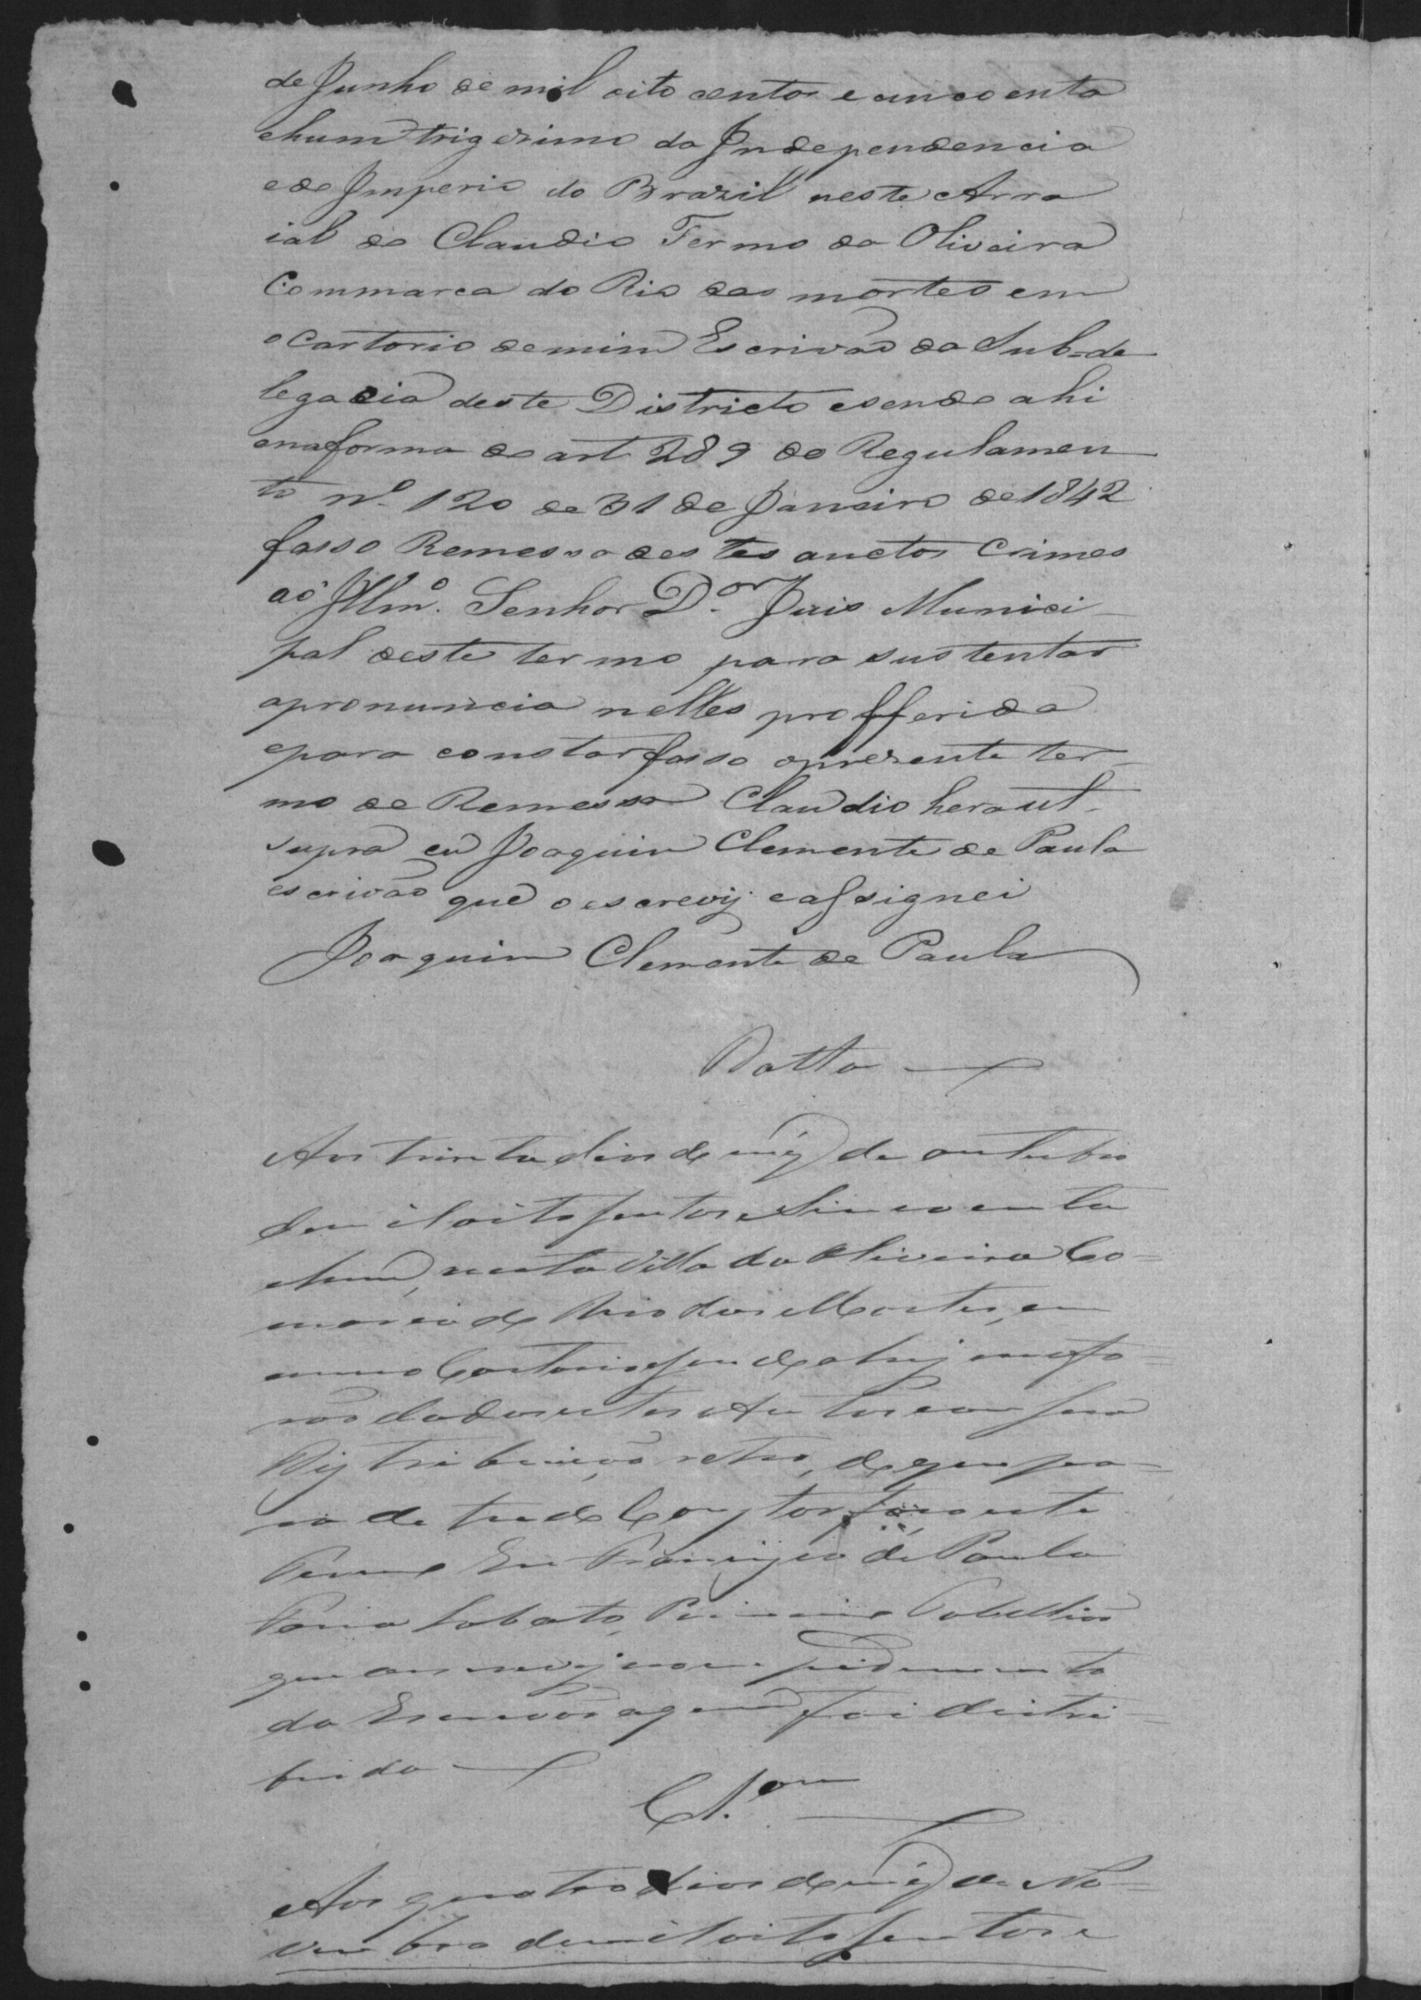 de Junho de mil oito centos e cincoenta
ehum trigesimo da Independencia
e do Imperio do Brazil neste Arra
ial do Claudio Termo da Oliveira
Commarca do Rio das mortes em
o Cartorio de mim Escrivão da Sub=de
legacia deste Districto esendo ahi
enaforma do art 289 do Regulamen
to nº 120 de 31 de Janeiro de 1842
fasso Remessa destes auctos Crimes
aó Illmº. Senhor D.or Juis Munici
pal deste termo para sustentar
apronuncia nelles profferida
epara constar fasso oprezente ter
mo de Remessa Claudio hera ut
supra eu Joaquim Clemente de Paula
escrivão que o escrevij e assignei
Joaquim Clemente de Paula
Datta
Aos trinta dias do mêz de outubro
de mil oito sentos e Sincoenta
ehum, nesta Villa da Oliveira Co=
marca do Rio das Mortes, em
meu Cartorio esendo ahij me fo=
rão dados estes Autos com sua
Distribuição retro, do que pa=
ra de tudo Constar faso este
Termo Eu Francisco de Paula
Faria Lobato, Primeiro Tabellião
que escrevij no impedimento
do Escrivão aquem foi distri=
buido
Cl.am
Aos quatro dias do mêz de No=
vembro de mil oito sentos e